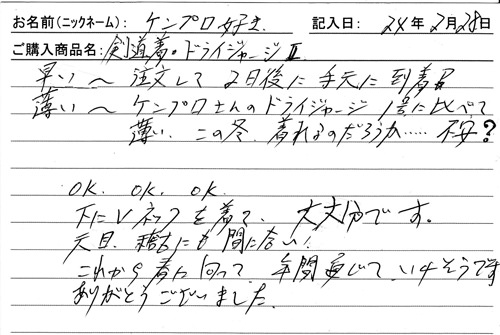 お名前(ニックネーム): ケンプロ好き 記入日: 24年2月28日
ご購入商品名: 剣道着・ドライジャージⅡ
早い〜注文して2日後に手元に到着
薄い〜ケンプロさんのドライジャージ1号に比べて
薄い この冬、着れるのだろうか…… 不安?
OK. OK. OK.
下にVネックを着て、大丈夫です。
元日、稽古にも間に合い!
これから春に向って、年間通じて、いけそうです
ありがとうございました。